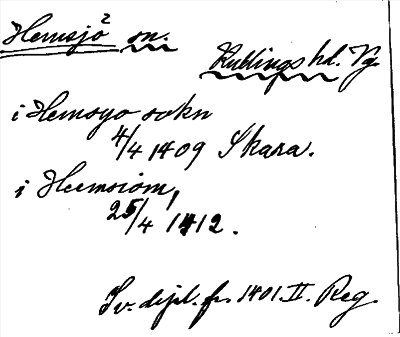 Hemsjö² sn.
Kullings hd. Vg.
i Hemsyo sokn
4/4 1409 Skara.
i Heemsiom,
25/4 1412.
Sv. dipl. fr. 1401. II. Reg.